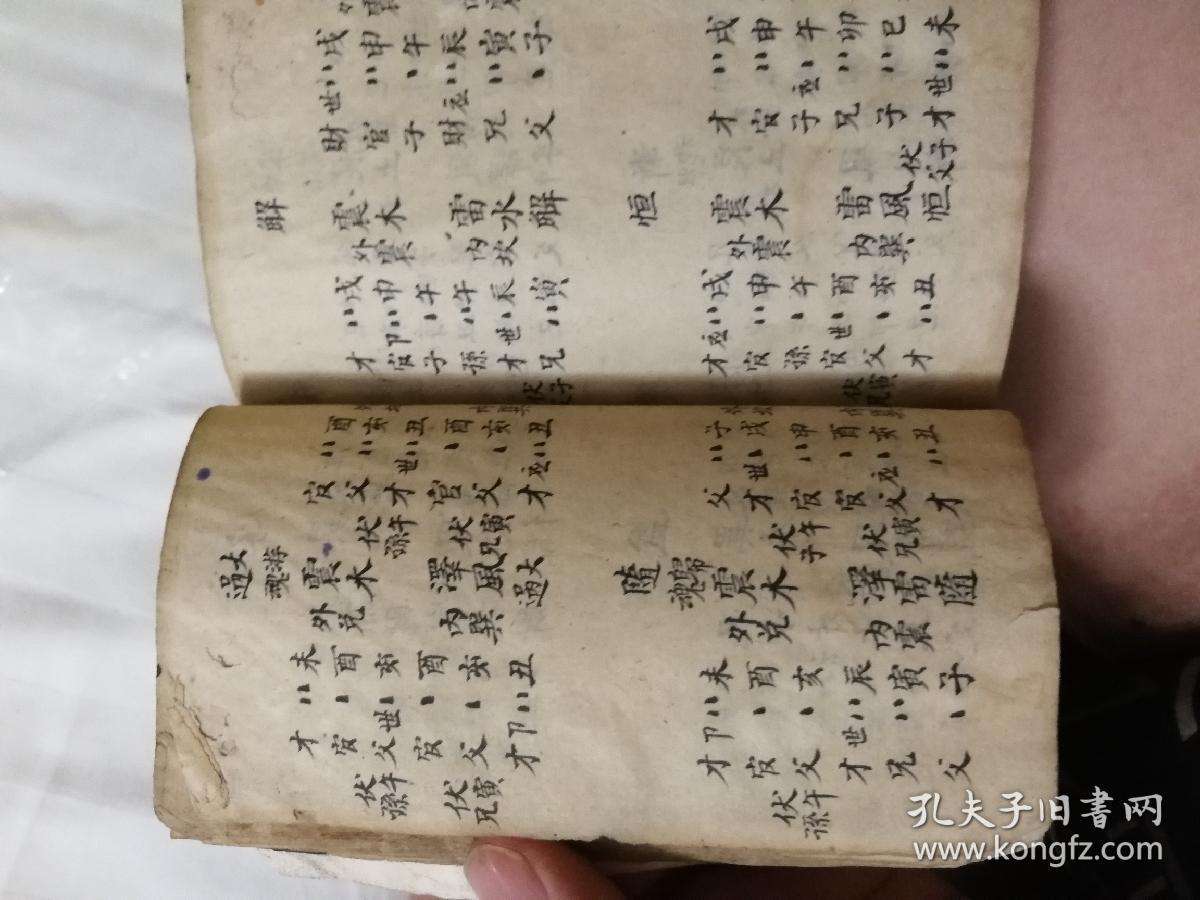 解
震木
雷水解
外震
内坎
才 〃戌
官 卩〃申
子 丶午
孫 〃午
才 世丶辰
兄 〃寅
財 世〃戌
官 〃申
子 丶午
財 〃辰
兄 〃寅
父 丶子
恒
震木
雷風恒
外震
内巽
才 〃戌
官 〃申
孫 丶午
官 世丶酉
父 丶亥
才 〃丑
伏兄寅
才 〃戌
官 〃申
子 丶午
兄 〃卯
子 〃巳
才 世〃未
伏父子
大過
游魂
震木
澤風大過
外兌
内巽
才 〃未
官 丶酉
父 世丶亥
官 丶酉
父 丶亥
才 卩〃丑
伏孫午
伏兄寅
官 〃酉
父 〃亥
才 世〃丑
官 丶酉
父 丶亥
才 〃丑
伏孫午
伏兄寅
隨
歸魂
震木
澤雷隨
外兌
内震
才 卩〃未
官 丶酉
父 丶亥
才 世〃辰
兄 〃寅
父 丶子
伏孫午
父 〃子
才 世丶戌
官 〃申
官 丶酉
父 丶亥
才 〃丑
伏子午
伏兄寅
孔夫子旧書网
www.kongfz.com